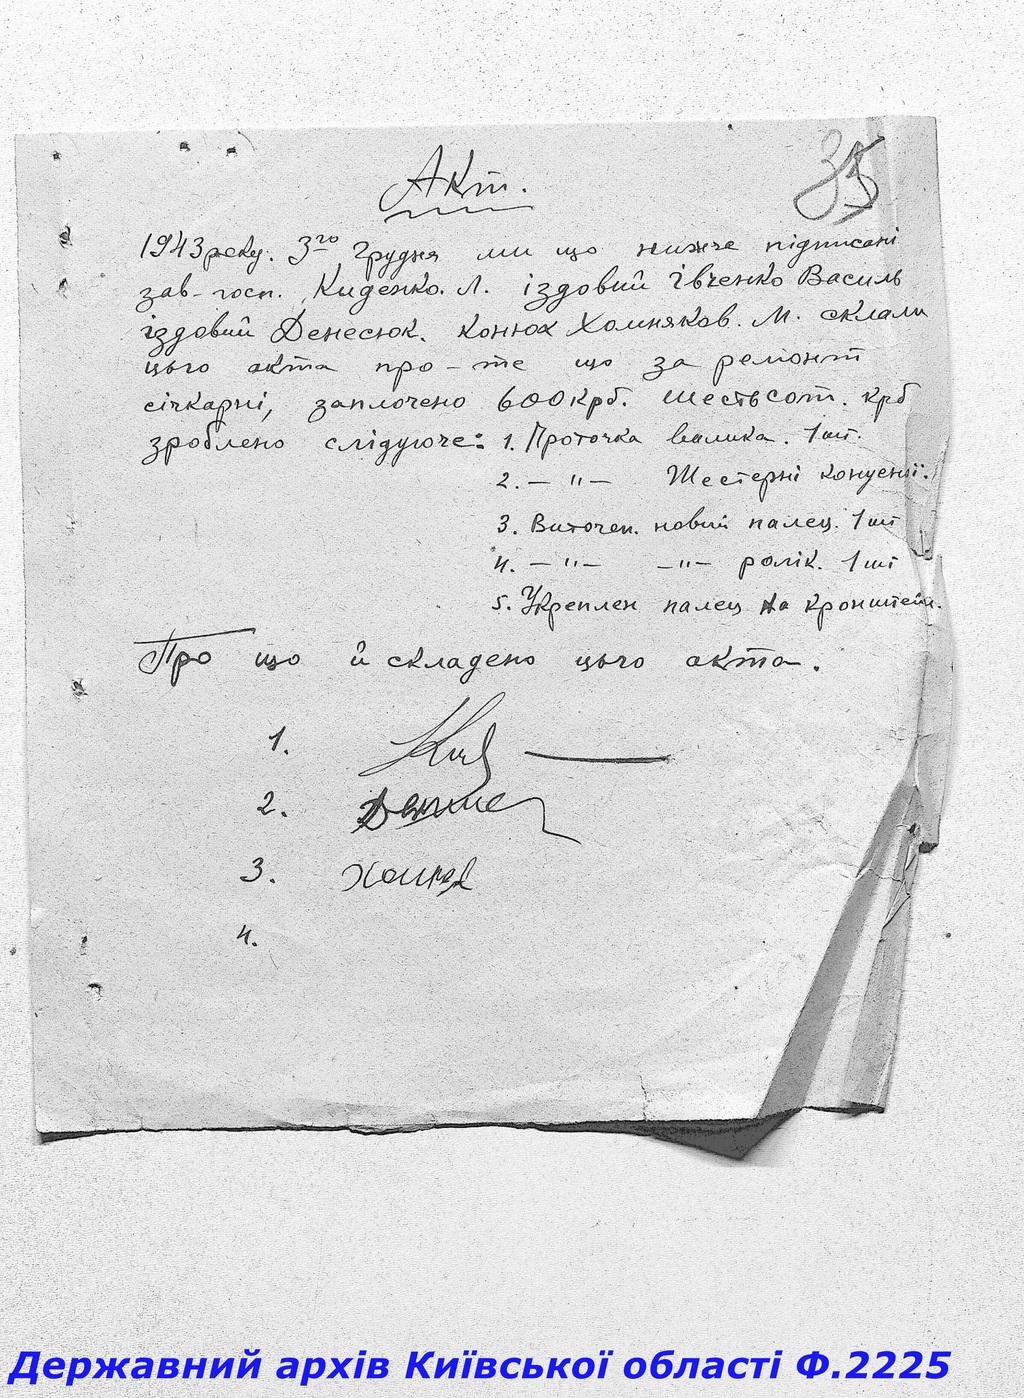 35
Акт.
1943 року. 3го Грудня ми що нижче підписані
зав-госп. Киденко. Л. іздовий Івченко Василь
іздовий Денесюк. конюх Холмняков. М. склали
цього акта про-те що за ремонт
січкарні, заплочено 600 крб. шестьсот. крб
зроблено слідуюче: 1. Проточка валика. 1 шт.
2. — " — Шестерні
3. Виточен. новий палец. 1 шт
4. — " — — " — ролік. 1 шт
5. Укреплен палец на кронштейн.
Про що й складено цього акта.
1. Кид
2.
3.
4.
Державний архів Київської області Ф.2225